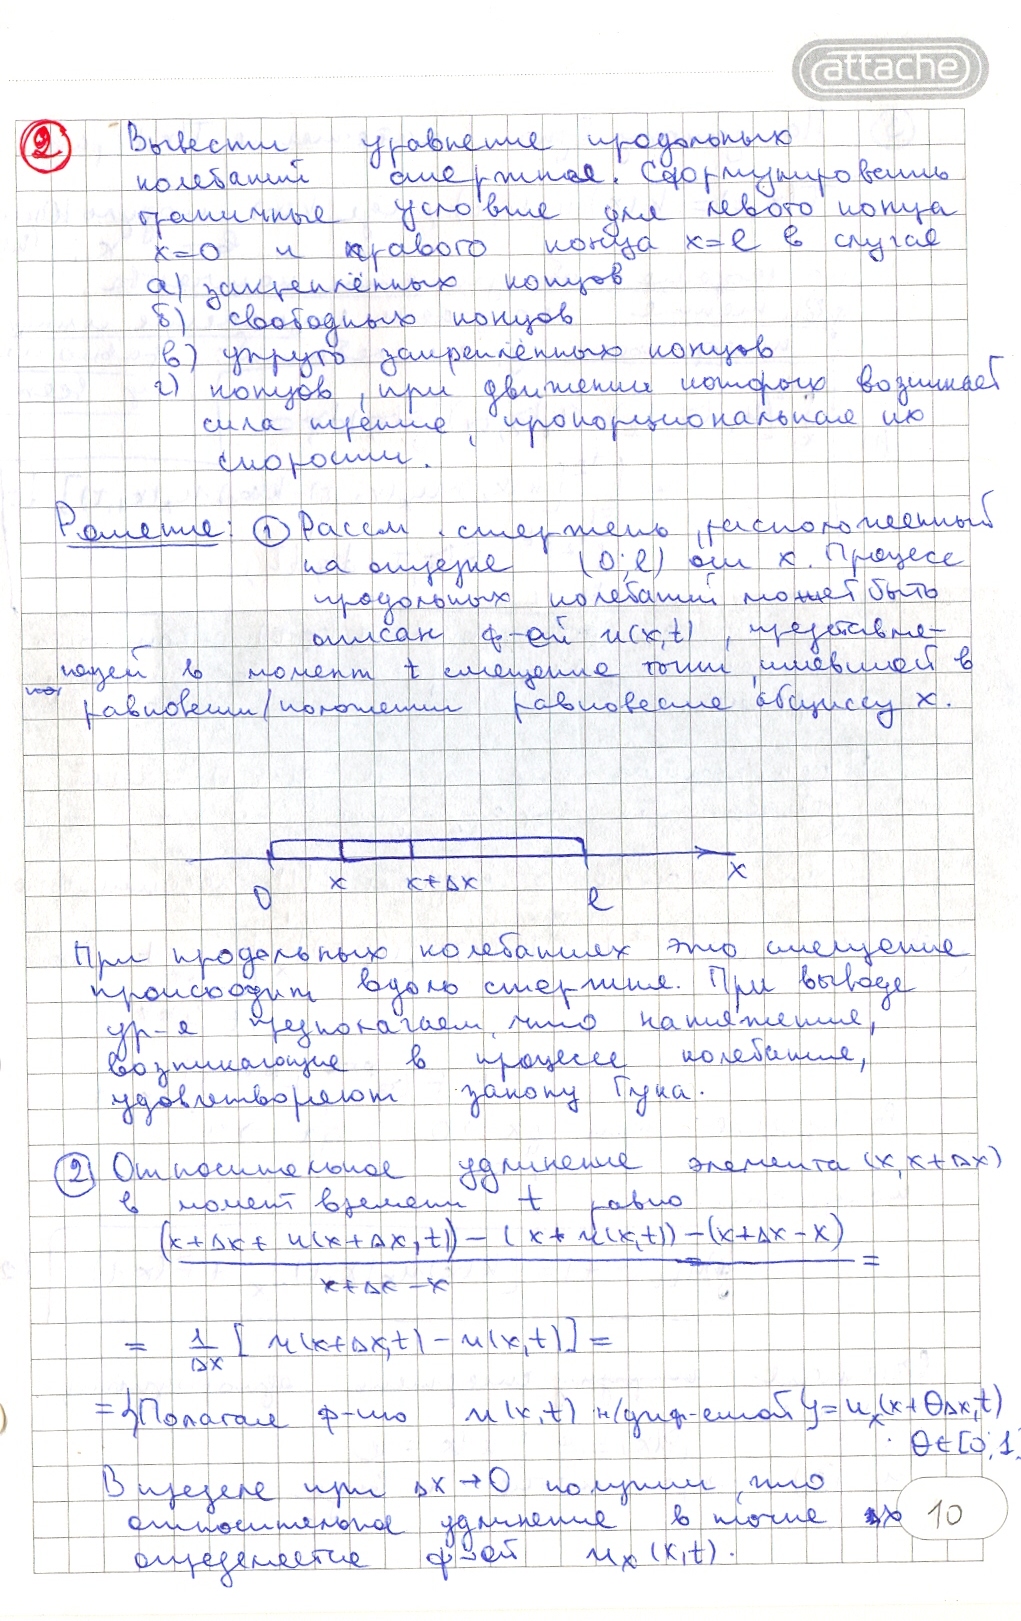 attache
2 Вывести уравнение продольных
колебаний стержня. Сформулировать
граничные условия для левого конца
x=0 и правого конца x=l в случае
а) закреплённых концов
б) свободных концов
в) упруго закреплённых концов
г) концов, при движении которых возникает
сила трения, пропорциональная их
скорости.
Решение: 1 Рассм. стержень, расположенный
на отрезке (0;l) оси x. Процесс
продольных колебаний может быть
описан ф-ей u(x,t), представля-
ющей в момент t смещение точки, имевшей в
равновесии/положении равновесия абсциссу x.
0 x x+Δx l x
При продольных колебаниях это смещение
происходит вдоль стержня. При выводе
ур-я предполагаем, что натяжения,
возникающие в процессе колебания,
удовлетворяют закону Гука.
2 Относительное удлинение элемента (x, x+Δx)
в момент времени t равно
(x+Δx+u(x+Δx,t))-(x+u(x,t))-(x+Δx-x)
x+Δx-x =
= 1/Δx [u(x+Δx,t)-u(x,t)] =
= {Полагая ф-ию u(x,t) н/диф-емой} = u_x(x+θΔx,t)
θ∈[0;1]
В пределе при Δx→0 получим, что
относительное удлинение в точке x
определяется ф-ей u_x(x,t).
10